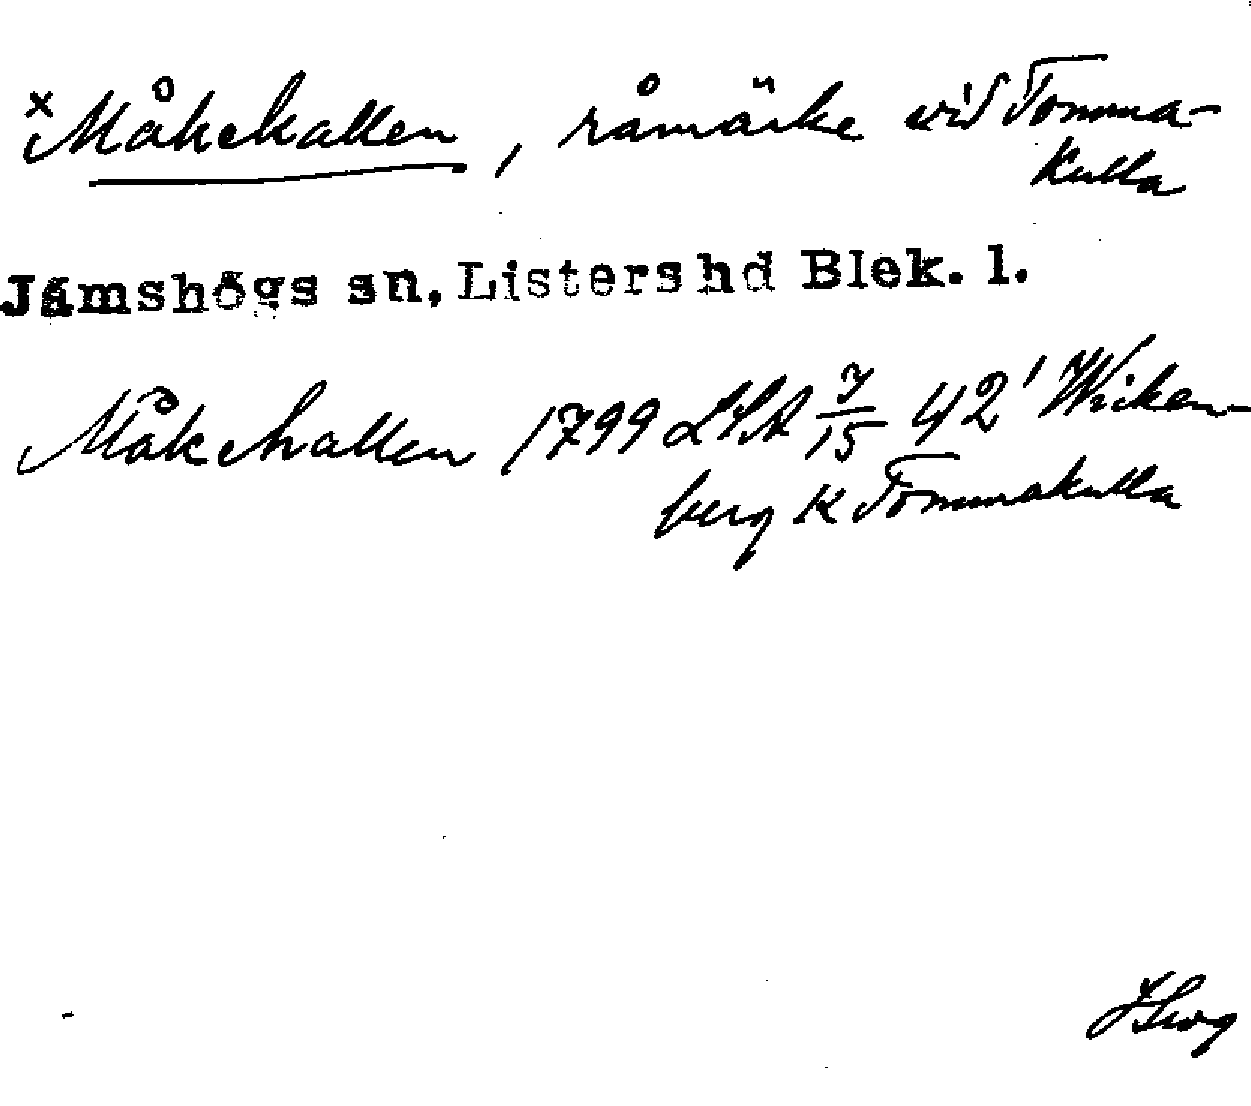 × Måkehallen, råmärke vid Tomma-
kulla
Jämshögs sn, Listers hd Blek. l.
Måkehallen 1799 LSA 7/15 42' Wiken-
berg K Tommakulla